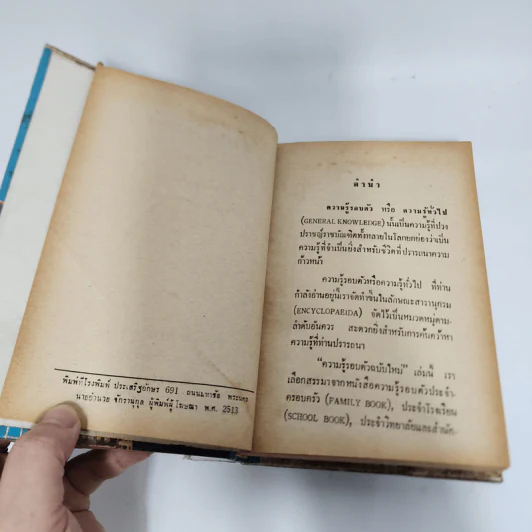 พิมพ์ที่โรงพิมพ์ ประเสริฐอักษร 691 ถนนมหาชัย พระนคร
นายอำนวย จักรานุกุล ผู้พิมพ์ผู้โฆษณา พ.ศ. 2513
คำนำ
ความรู้รอบตัว หรือ ความรู้ทั่วไป
(GENERAL KNOWLEDGE) นั้นเป็นความรู้ที่ปวง
ปราชญ์ราชบัณฑิตทั้งหลายในโลกยกย่องว่าเป็น
ความรู้ที่จำเป็นยิ่งสำหรับชีวิตที่ปรารถนาความ
ก้าวหน้า
ความรู้รอบตัวหรือความรู้ทั่วไป ที่ท่าน
กำลังอ่านอยู่นี้เราจัดทำขึ้นในลักษณะสารานุกรม
(ENCYCLOPAEIDA) จัดไว้เป็นหมวดหมู่ตาม-
ลำดับอันควร สะดวกยิ่งสำหรับการค้นคว้าหา
ความรู้ที่ท่านปรารถนา
“ความรู้รอบตัวฉบับใหม่” เล่มนี้ เรา
เลือกสรรมาจากหนังสือความรู้รอบตัวประจำ-
ครอบครัว (FAMILY BOOK), ประจำโรงเรียน
(SCHOOL BOOK), ประจำวิทยาลัยและสำนัก-